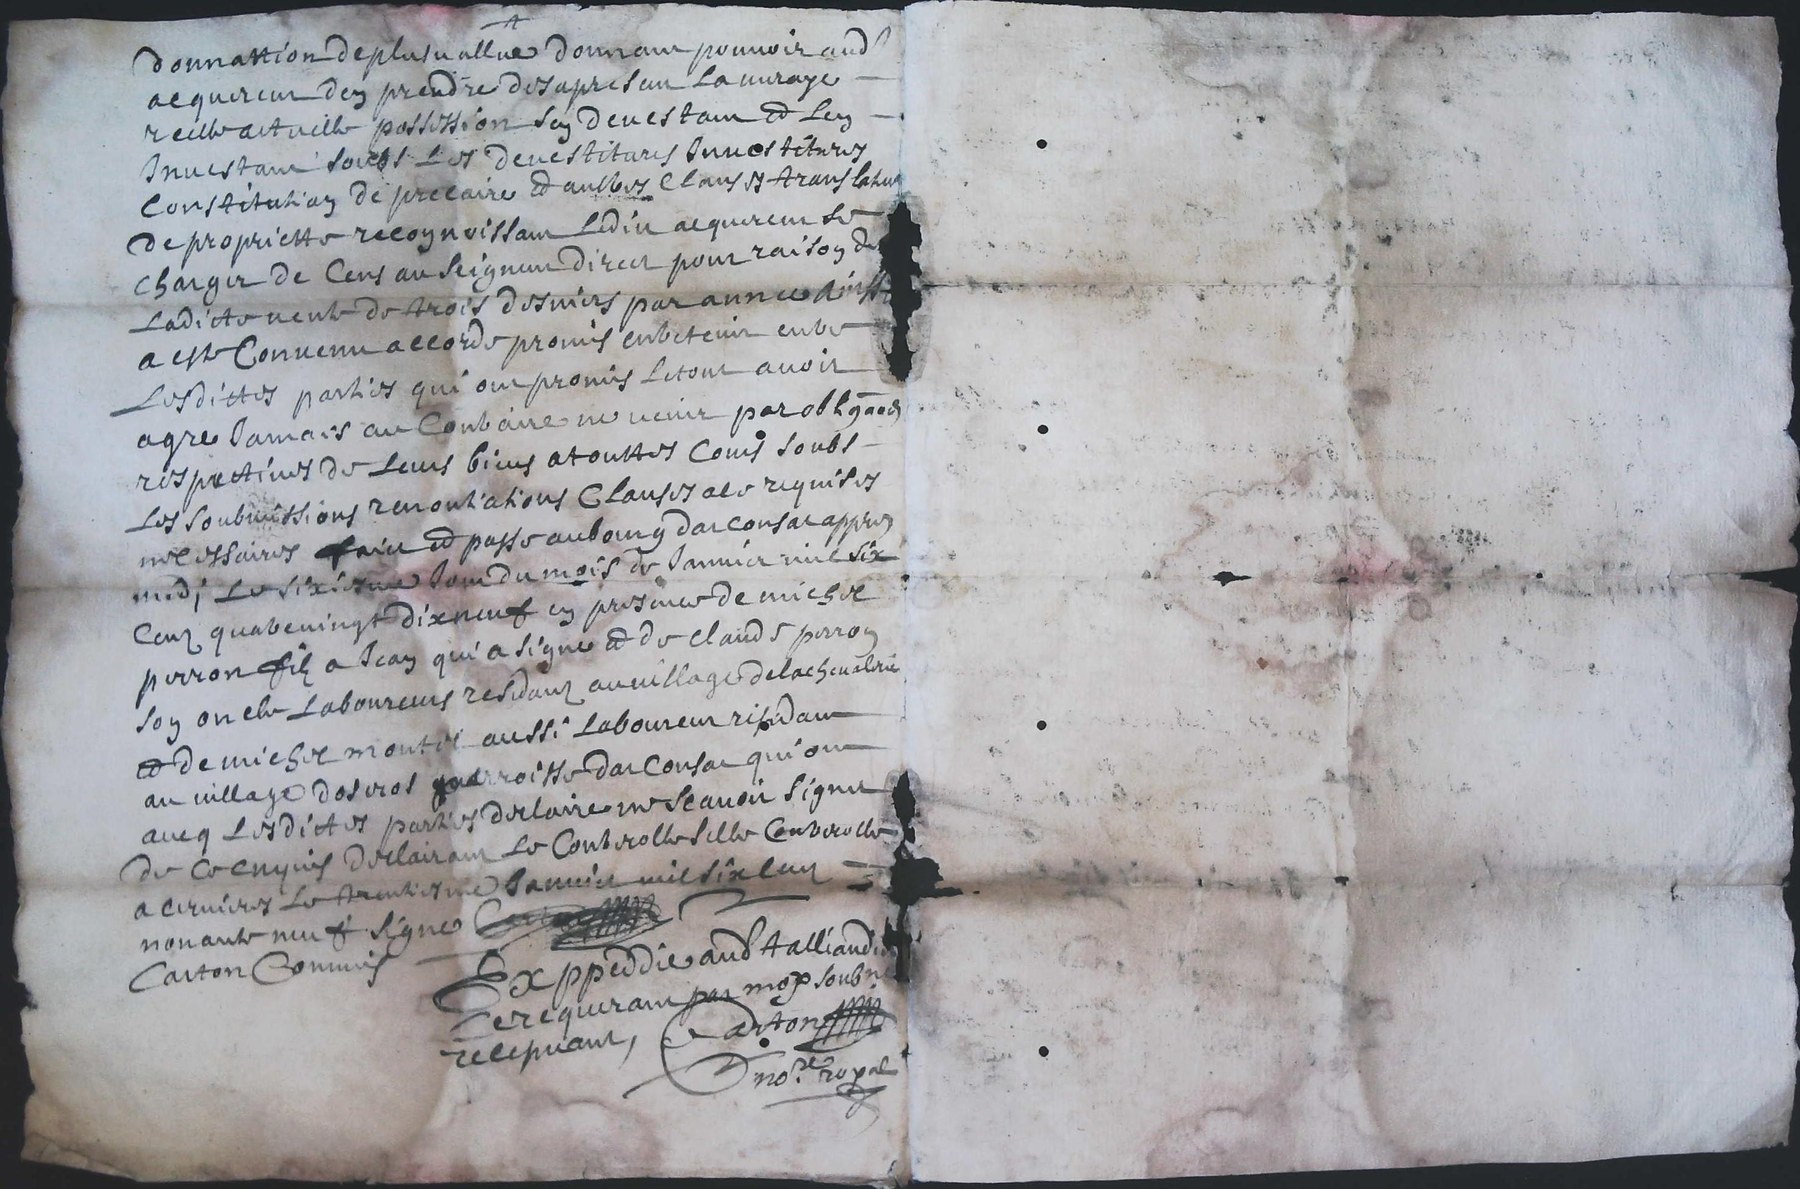 donnattion de plus vallue donnant pouvoir aud
acquereur den prendre des apresant la vraye
reelle actuelle possession sen devestant et len
Investant soubs les devestitures Investitures
Constitution de precaire et autres Clauses translatives
de proprietté recognoissant ledit acquereur se
charger de Cens au seigneur direct pour raison de
Laditte vente de trois deniers par année ainsi
a este Convenu accordé promis entretenir entre
Lesdittes parties qui ont promis letout avoir
agreé Jamais au Contraire ne venir par obligaon
respectives de leurs biens a touttes Cours soubs
Les soubmissions renontiations Clauses ace requises
necessaires faict et passé au bourg darconsat appres
midj Le sixiesme Jour du mois de Janvier mil six
Cent quatre vingt dixneuf en presance de michel
perron filz a Jean qui a signé et de claude perron
son oncle Laboureurs residantz au village de lachevalerie
et de michel aussi Laboureur residant
au village parroisse darconsat qui ont
avecq Lesdittes parties declaire ne scavoir signer
de ce enquis declairant Le Controlle selle Controllé
a Le trentiesme Janvier mil six cent
nonante neuf signé
Carton Commis
Expeddié aud talliandier
Ce requerant par moy soubné
recepvant, Carton
nore royal